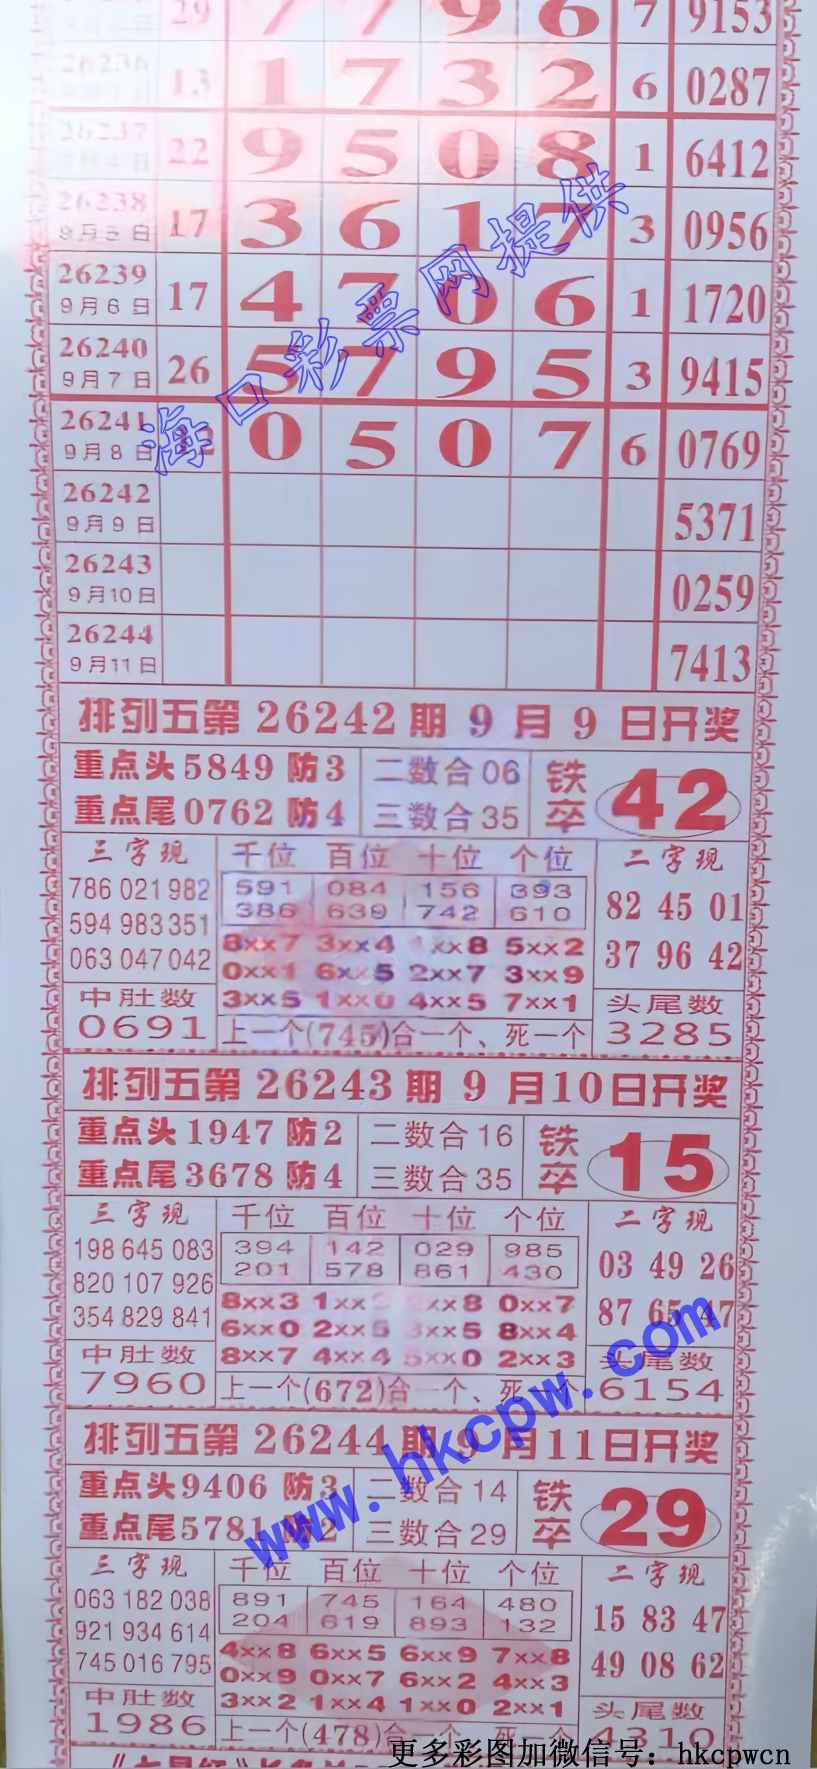 29 7 7 9 6 7 9153
26236 13 1 7 3 2 6 0287
26237 22 9 5 0 8 1 6412
26238 17 3 6 1 7 3 0956
9月5日
26239 17 4 7 0 6 1 1720
9月6日
26240 26 5 7 9 5 3 9415
9月7日
26241 0 5 0 7 6 0769
9月8日
26242 5371
9月9日
26243 0259
9月10日
26244 7413
9月11日
海口彩票网提供
排列五第26242期9月9日开奖
重点头5849防3 二数合06 铁卒 42
重点尾0762防4 三数合35
三字现 千位 百位 十位 个位 二字现
786 021 982 591 084 156 393 82 45 01
594 983 351 386 639 742 610
063 047 042 8xx7 3xx4 xx8 5xx2 37 96 42
0xx1 6xx5 2xx7 3xx9
中肚数 3xx5 1xx0 4xx5 7xx1 头尾数
0691 上一个(745)合一个、死一个 3285
排列五第26243期9月10日开奖
重点头1947防2 二数合16 铁卒 15
重点尾3678防4 三数合35
三字现 千位 百位 十位 个位 二字现
198 645 083 394 142 029 985 03 49 26
820 107 926 201 578 861 430
354 829 841 8xx3 1xx xx8 0xx7 87 65 47
6xx0 2xx5 xx5 8xx4
中肚数 8xx7 4xx4 xx0 2xx3 头尾数
7960 上一个(672)合一个、死一个 6154
www.hkcpw.com
排列五第26244期9月11日开奖
重点头9406防3 二数合14 铁卒 29
重点尾5781防2 三数合29
三字现 千位 百位 十位 个位 二字现
063 182 038 891 745 164 480 15 83 47
921 934 614 204 619 893 132
745 016 795 4xx8 6xx5 6xx9 7xx8 49 08 62
0xx9 0xx7 6xx2 4xx3
中肚数 3xx2 1xx4 1xx0 2xx1 头尾数
1986 上一个(478)合一个、死一个 4310
更多彩图加微信号：hkcpwcn